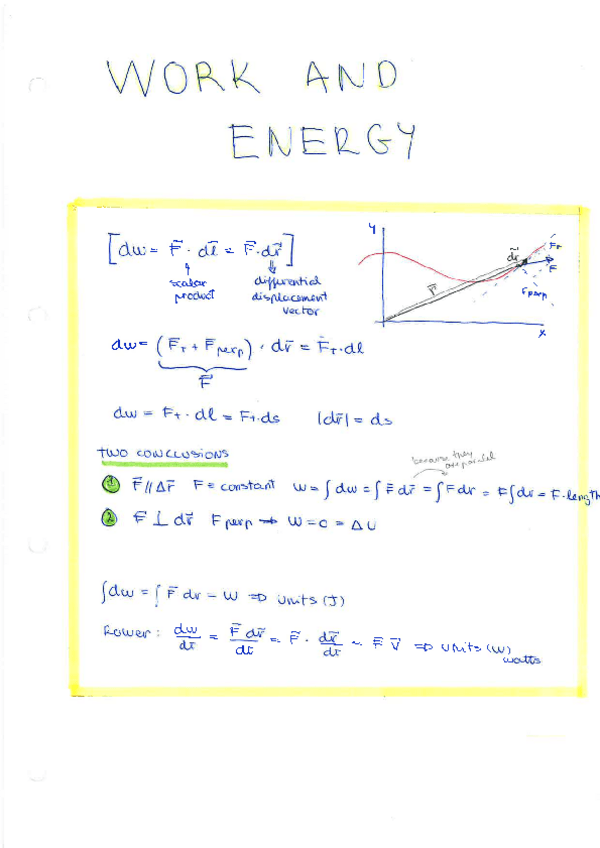 WORK AND
ENERGY
[dw = F⃗ · dl⃗ = F⃗·dr⃗]
scalar
product
differential
displacement
vector
y
dr⃗
FT
F
Fperp
r⃗
x
dw = (F⃗T + F⃗perp) · dr⃗ = F⃗T · dl
F⃗
dw = FT · dl = FT·ds |dr⃗| = ds
TWO CONCLUSIONS
because they
are parallel
① F⃗ // Δr⃗ F = constant W = ∫dw = ∫F⃗ dr⃗ = ∫F dr = F∫dr = F·length
② F⃗ ⊥ dr⃗ Fperp → W = 0 = ΔU
∫dw = ∫F⃗ dr = W ⇒ units (J)
Power: dw/dt = F⃗ dr⃗/dt = F⃗ · dr⃗/dt = F⃗ V⃗ ⇒ units (W)
watts